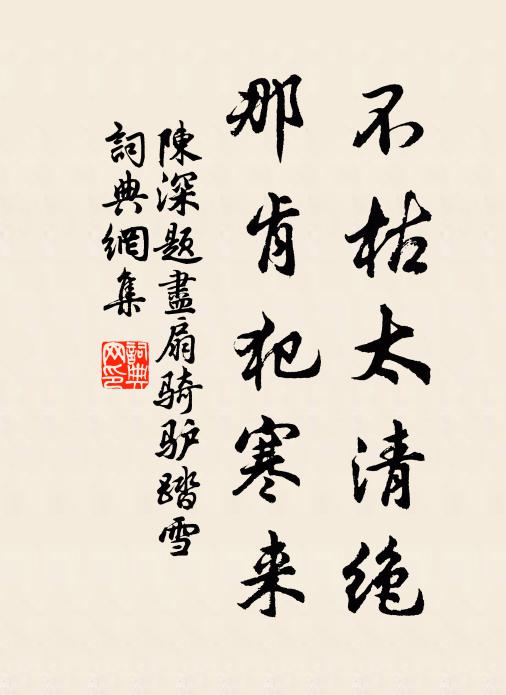 不枯太清绝
那肯犯寒来
陳深题盡扇骑驴踏雪
詞典網集
詞典
网印